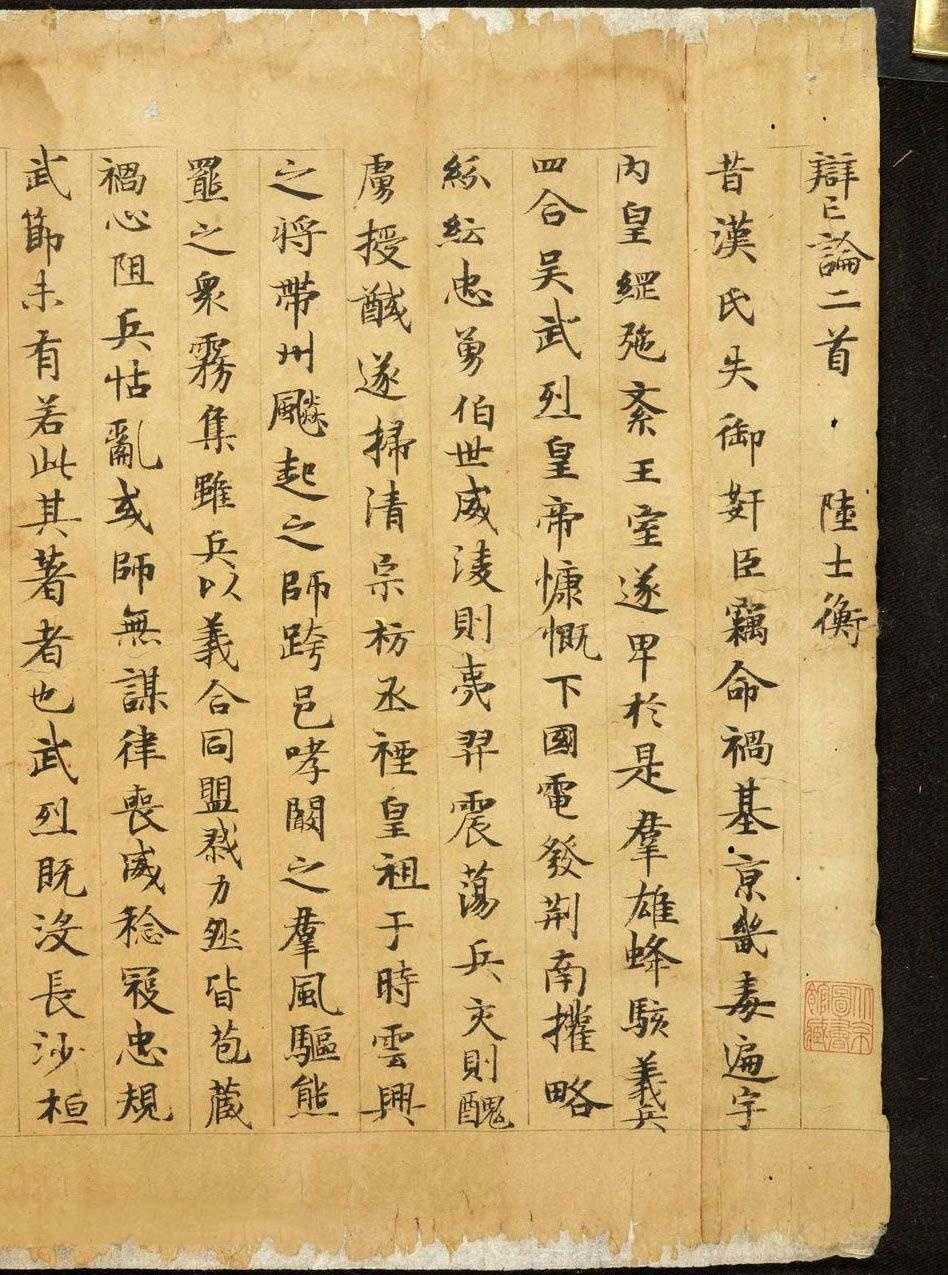 辯亡論二首 陸士衡
昔漢氏失御奸臣竊命禍基京畿毒遍宇
内皇綱弛紊王室遂卑於是羣雄蜂駭義兵
四合吴武烈皇帝慷慨下國電發荆南權略
紛紜忠勇伯世威淩則夷羿震蕩兵交則醜
虜授馘遂掃清宗祊丞禋皇祖于時雲興
之将帶州飇起之師跨邑哮闞之羣風驅熊
羆之衆霧集雖兵以義合同盟勠力然皆苞藏
禍心阻兵怙亂或師無謀律喪威稔寇忠規
武節未有若此其著者也武烈既没長沙桓
北京圖書館藏